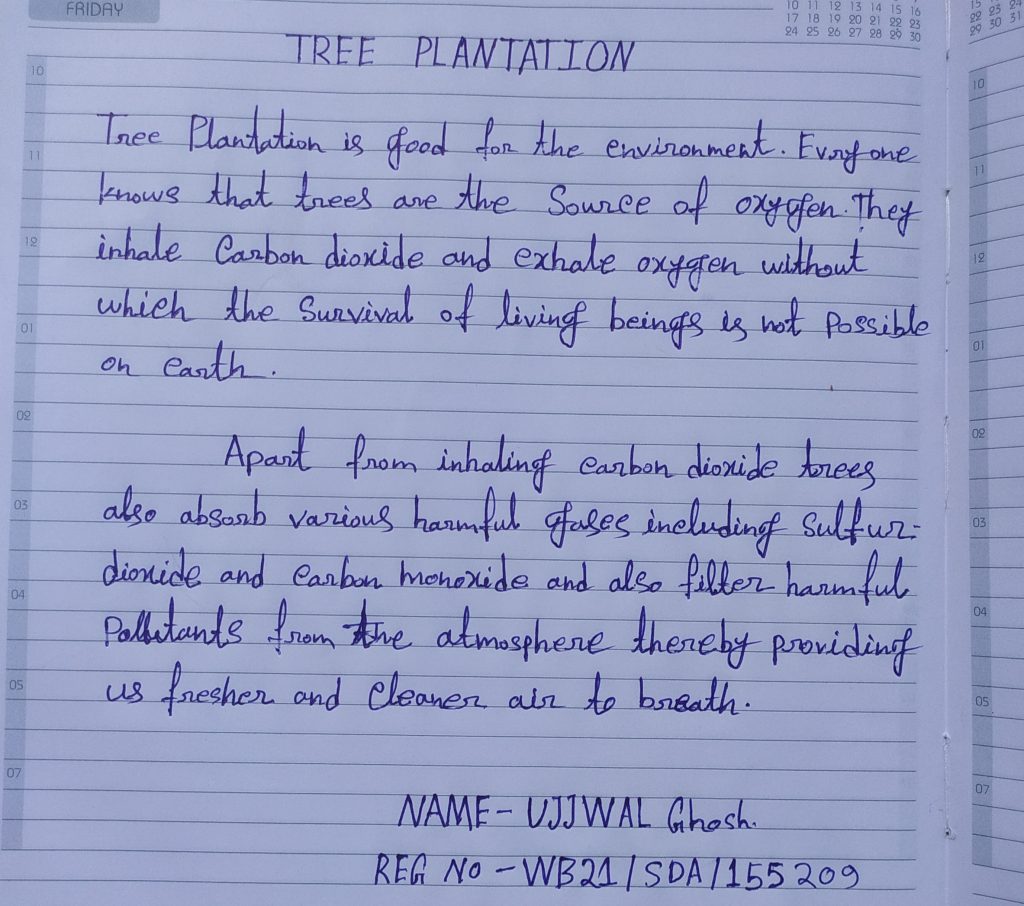 FRIDAY
10 11 12 13 14 15 16
17 18 19 20 21 22 23
24 25 26 27 28 29 30
22 23 24
29 30 31
TREE PLANTATION
10
Tree Plantation is good for the environment. Everyone
11
knows that trees are the Source of oxygen. They
12
inhale Carbon dioxide and exhale oxygen without
which the Survival of living beings is not Possible
01
on earth.
02
Apart from inhaling carbon dioxide trees
03
also absorb various harmful gases including Sulfur-
dioxide and Carbon monoxide and also filter harmful
04
Pollutants from the atmosphere thereby providing
05
us fresher and Cleaner air to breath.
07
NAME - UJJWAL Ghosh.
REG NO - WB21/SDA/155209
10
11
12
01
02
03
04
05
07